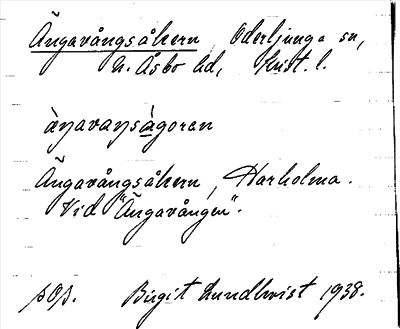 Ängavångsåkern, Oderljunga sn,
N. Åsbo hd, Krist. l.
àŋavaŋsàgoran
Ängavångsåkern, Harholma.
Vid "Ängavången".
Birgit Lundkvist 1938.